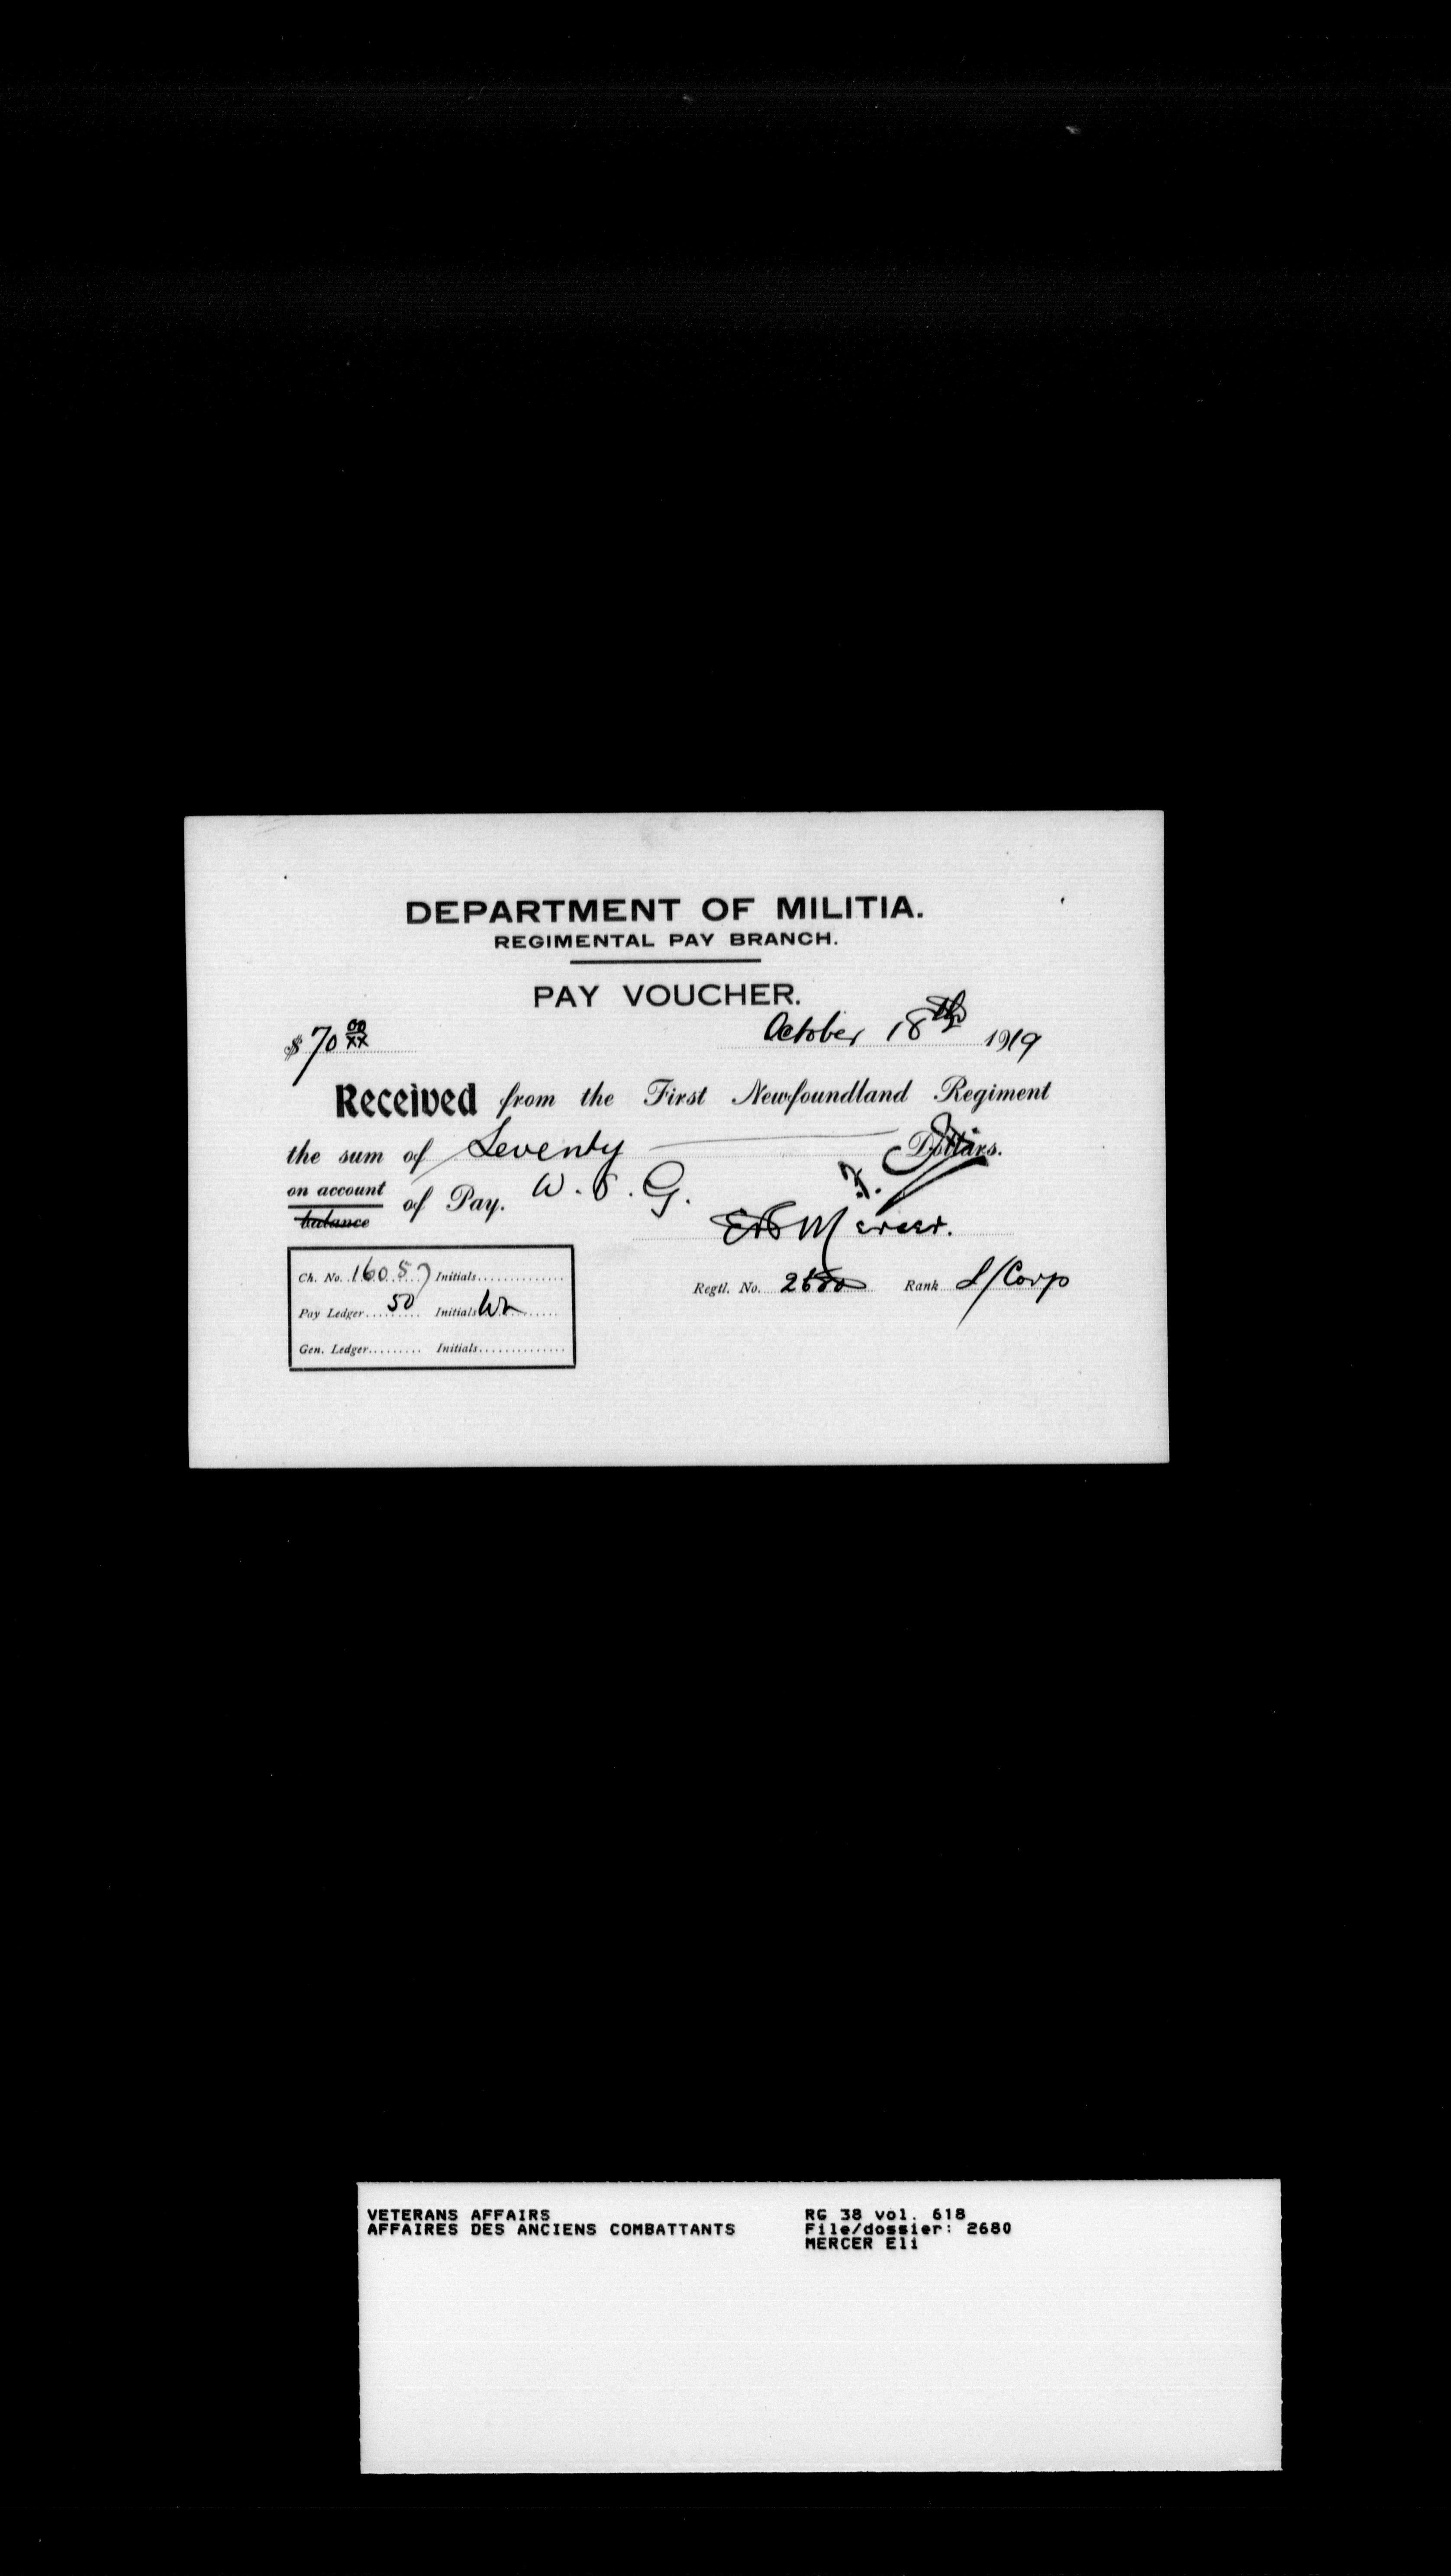 DEPARTMENT OF MILITIA.
REGIMENTAL PAY BRANCH.
PAY VOUCHER.
$ 70 00/xx October 18th 1919
Received from the First Newfoundland Regiment
the sum of Seventy Dollars.
on account of Pay. W. S. G.
balance
Mercer.
Ch. No. 16057 Initials
Regtl. No. 2680 Rank L/Corp
Pay Ledger 50 Initials
Gen. Ledger Initials
VETERANS AFFAIRS RG 38 vol. 618
AFFAIRES DES ANCIENS COMBATTANTS File/dossier: 2680
MERCER Eli